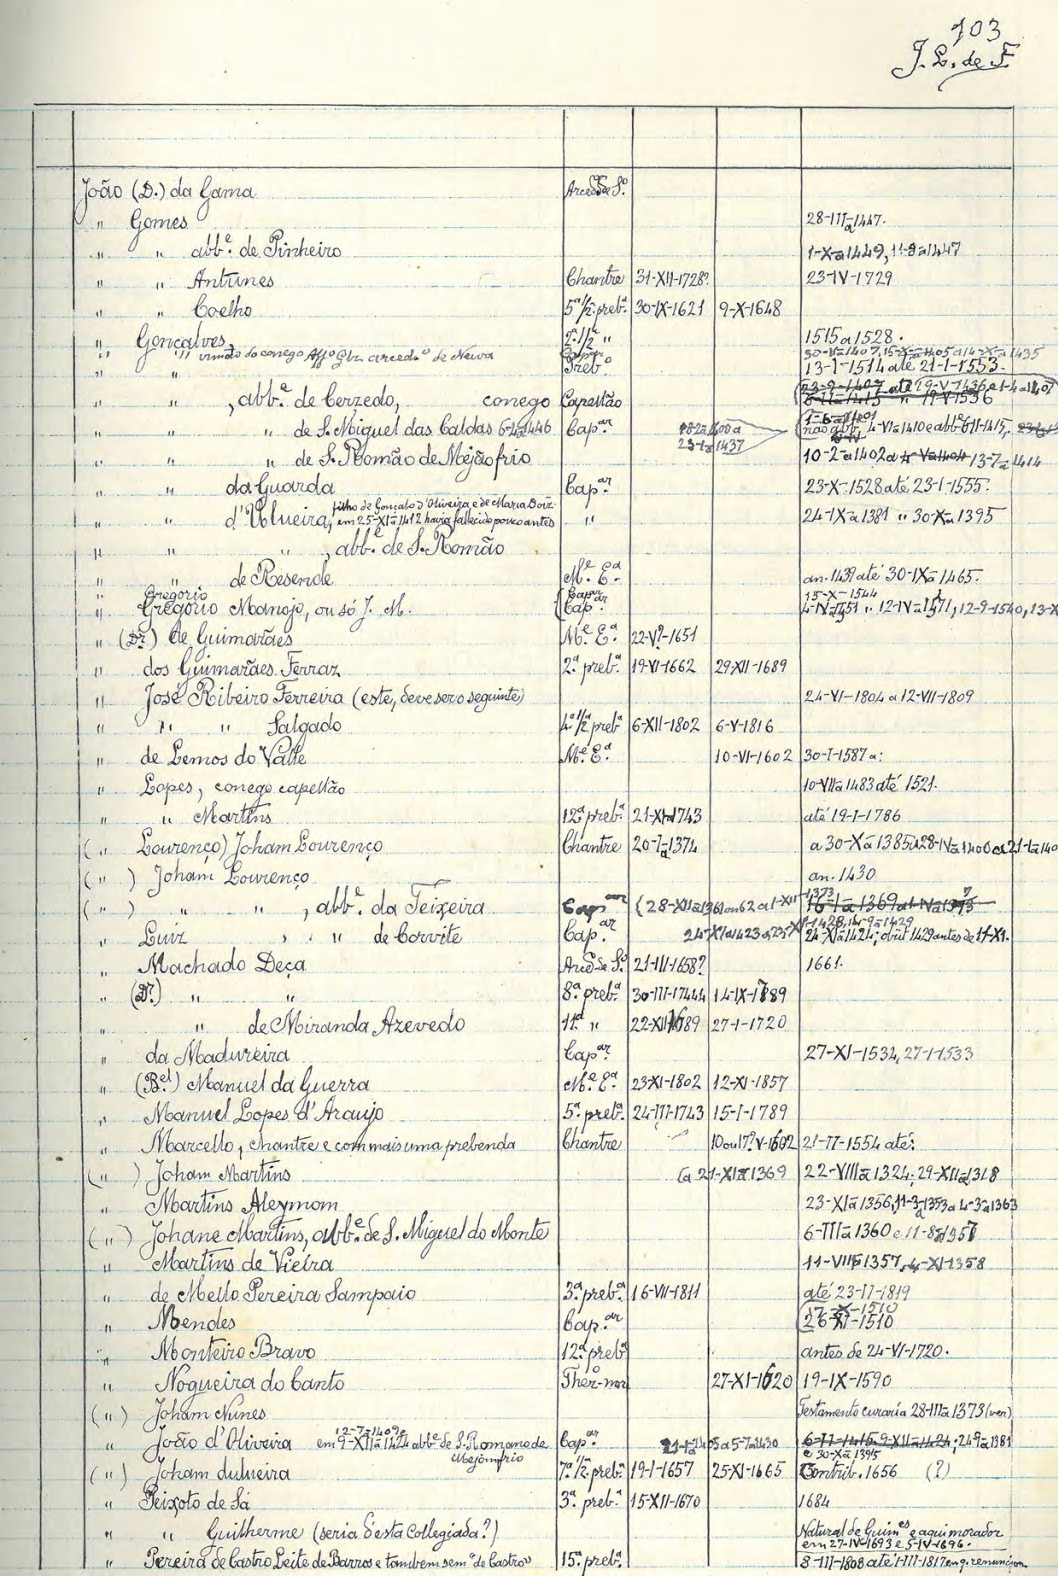 103
J. L. de F.
João (D.) da Gama Arced. de Sº.
" Gomes 28-III-a 1447.
" " abbᵉ. de Pinheiro 1-X-a 1449, 11-8-a 1447
" " Antunes Chantre 31-XII-1728? 23-IV-1729
" " Coelho 5ª ½ prebª 30-IX-1621 9-X-1648
" Gonçalves, 2ª 1/2 " 1515 a 1528.
" " irmão do conego Affº Glz. arcedº de Neiva
" " Preb. 13-I-1514 até 21-I-1553.
" " , abbᵉ. de Cerzedo, conego Capellão
" " " de S. Miguel das Caldas Capᵃʳ 23-I-a 1437
" " " de S. Romão de Mejãofrio 10-2-a 1402 a 13-7-a 1414
" " da Guarda Capᵃʳ 23-X-1528 até 23-I-1555.
" " d'Ulveira, filho de Gonçalo d'Oliveira e de Maria Domz.
em 25-XI-a 1412 havia fallecido pouco antes " 24-IX-a 1381 " 30-X-a 1395
" " " , abbᵉ. de S. Romão
" " de Resende Mᵉ Eᵃ. an. 1439 até 30-IX-a 1465.
Gregorio Capᵃʳ 15-X-1544
" Gregorio Manojo, ou só J. M. Capᵃʳ 12-9-1540,
" (Dr.) de Guimarães Mᵉ Eᵃ. 22-V?-1651
" dos Guimarães Ferraz 2ª prebª 19-VI-1662 29-XII-1689
" José Ribeiro Ferreira (este, deve ser o seguinte) 24-VI-1804 a 12-VII-1809
" " " Salgado 4ª ½ prebª 6-XII-1802 6-V-1816
" de Lemos do Valle Mᵉ Eᵃ. 10-VI-1602 30-I-1587 a:
" Lopes, conego capellão 10-VII-a 1483 até 1521.
" " Martins 12ª prebª 21-XI-1743 até 19-I-1786
(" Lourenço) Joham Lourenço Chantre 20-I-a 1374 a 30-X-a 1385
(") Joham Lourenço an. 1430
(") " " , abbᵉ. da Teixeira Capᵃʳ
" Luiz , " de Corvite Capᵃʳ 24-XI-a 1424; obiit 1429 antes de 11-XI.
" Machado Deça Arcº de Sº. 21-III-1658? 1661.
" (Dr.) " " 8ª prebª 30-III-1744 14-IX-1789
" " de Miranda Azevedo 11ª " 22-XII-1689 27-I-1720
" da Madureira Capᵃʳ 27-XI-1532, 27-I-1533
" (Bᵉˡ) Manuel da Guerra Mᵉ Eᵃ. 23-XI-1802 12-XI-1857
" Manuel Lopes d'Araujo 5ª prebª 24-III-1743 15-I-1789
" Marcello, chantre e com mais uma prebenda Chantre 10 ou 17?-V-1602 21-II-1554 até:
(") Joham Martins (a 21-XI-a 1369 22-VIII-a 1324; 29-XII-a 1318
" Martins Aleymom 23-XI-a 1356, 11-3-a 1353 a 4-3-a 1363
(") Johane Martins, abbᵉ. de S. Miguel do Monte 6-III-a 1360 e 11-8-a 1357
" Martins de Vieira 11-VIII-1357, 4-XI-1358
" de Mello Pereira Sampaio 3ª prebª 16-VII-1811 até 23-II-1819
" Mendes Capᵃʳ 17-X-1510
26-XI-1510
" Monteiro Bravo 12ª prebª antes de 24-VI-1720.
" Nogueira do Canto Thez-mor 27-XI-1620 19-IX-1590
(") Joham Nunes Testamento curaria 28-III-a 1373 (ver)
" João d'Oliveira em 9-XII-a 1424 abbᵉ de S. Romano de
Mejomfrio Capᵃʳ 24-9-a 1381
e 30-X-a 1395
(") Joham dulueira 7ª ½ prebª 19-I-1657 25-XI-1665 Contrib. 1656 (?)
" Peixoto de Sá 3ª prebª 15-XII-1670 1684
" " Guilherme (seria d'esta Collegiada?) Natural de Guimᵉˢ e aqui morador
em 27-IV-1693 e 5-IV-1696.
" Pereira de Castro Leite de Barros e tambem sem "de Castro" 15ª prebª 8-III-1808 até 1-III-1817 em q. renunciou.